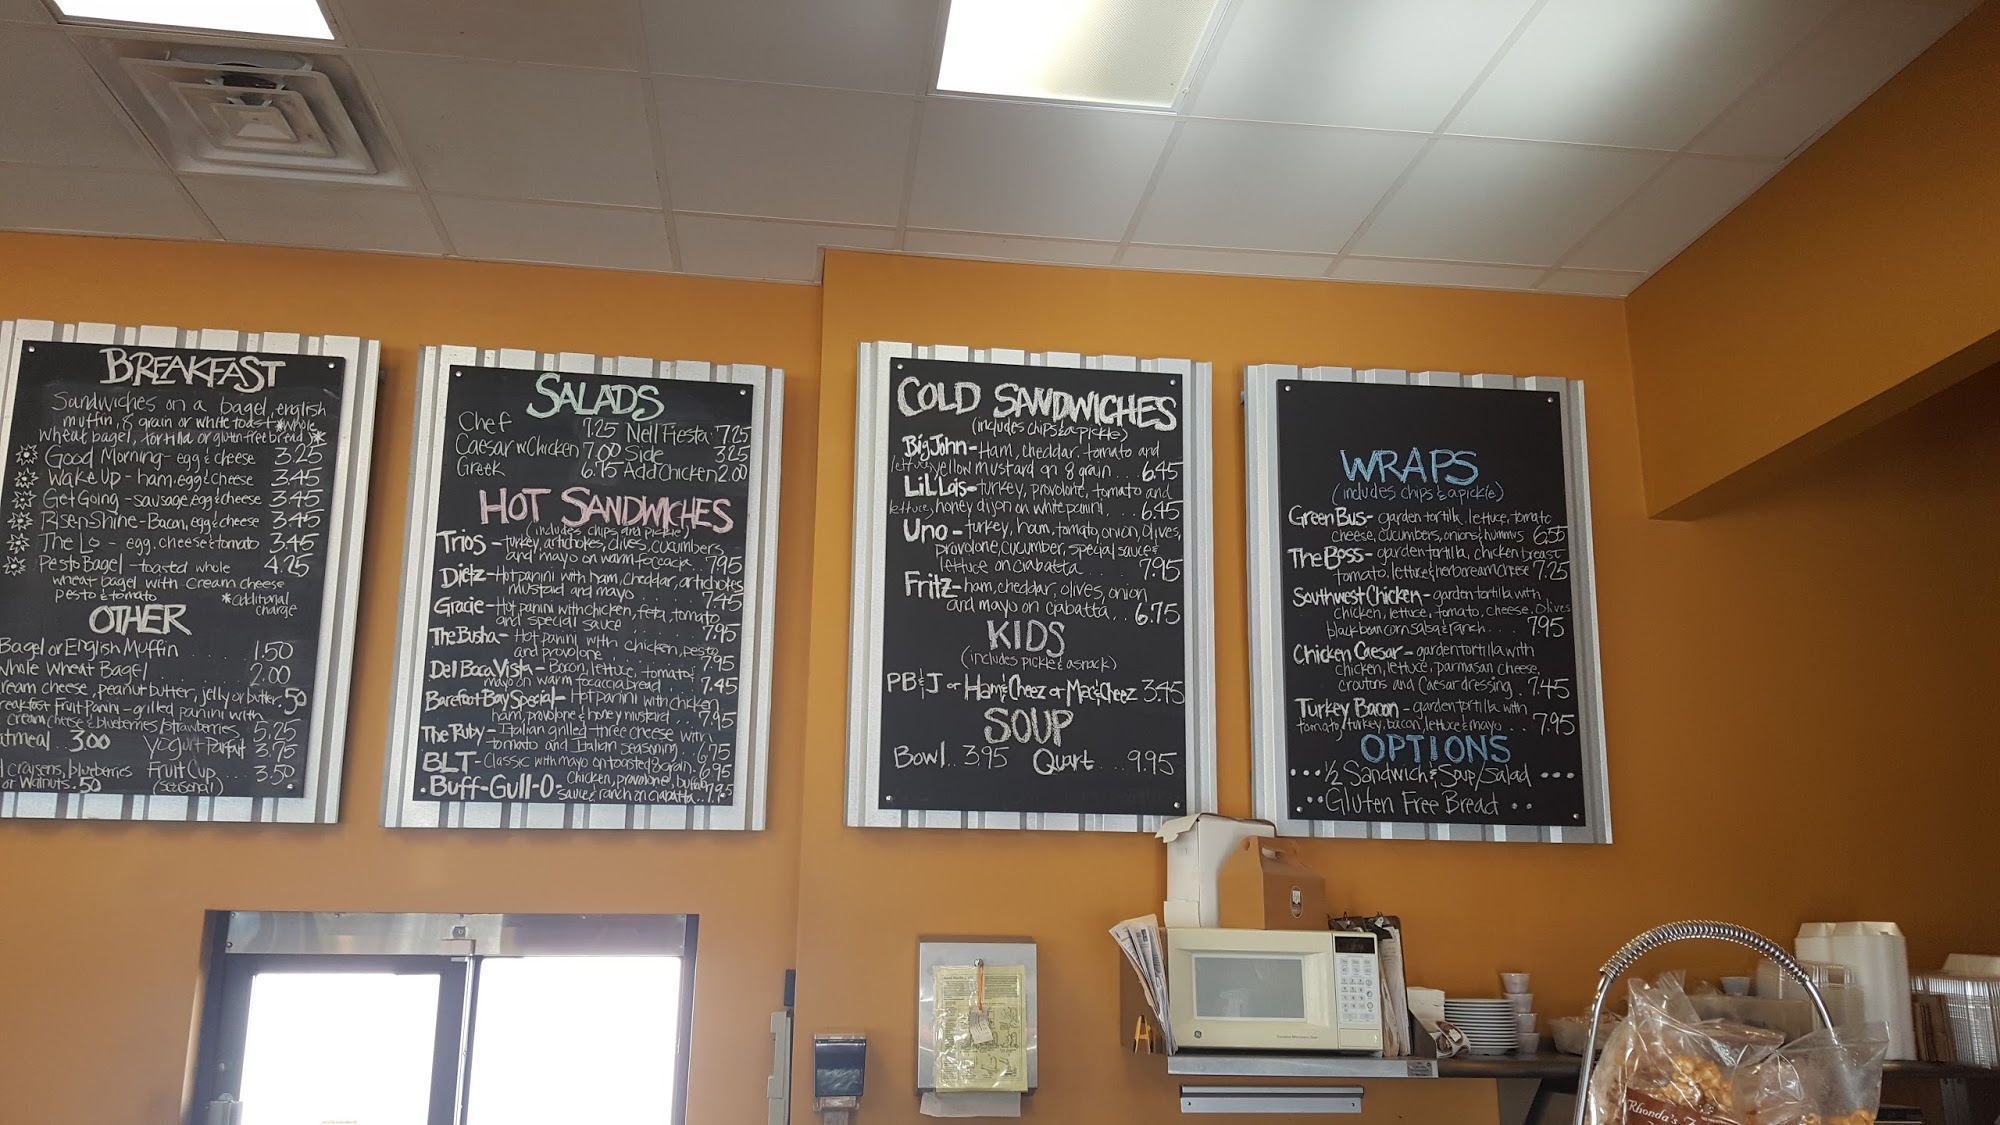 BREAKFAST
Sandwiches on a bagel, english
muffin, 8 grain or white toast *whole
wheat bagel, tortilla or gluten free bread)*
Good Morning - egg & cheese 3.25
Wake Up - ham, egg & cheese 3.45
Get Going - sausage, egg & cheese 3.45
Risen Shine - Bacon, egg & cheese 3.45
The Lo - egg, cheese & tomato 3.45
Pesto Bagel - toasted whole 4.25
wheat bagel with cream cheese
pesto & tomato *additional
charge
OTHER
Bagel or English Muffin 1.50
Whole Wheat Bagel 2.00
ream cheese, peanut butter, jelly or butter .50
reakfast Fruit Panini - grilled panini with
cream cheese & blueberries/strawberries 5.25
atmeal .. 3.00 Yogurt Parfait 3.75
craisens, blueberries Fruit Cup ... 3.50
or walnuts .50 (seasonal)
SALADS
Chef 7.25 Nell Fiesta 7.25
Caesar w Chicken 7.00 Side 3.25
Greek 6.75 Add Chicken 2.00
HOT SANDWICHES
(includes chips and pickle)
Trios - turkey, artichokes, olives, cucumbers
and mayo on warm focaccia 7.95
Dietz - Hot panini with ham, cheddar, artichokes
mustard and mayo 7.45
Gracie - Hot panini with chicken, feta, tomato
and special sauce 7.95
The Busha - Hot panini with chicken, pesto
and provolone 7.95
Del Boca Vista - Bacon, lettuce, tomato &
mayo on warm focaccia bread 7.45
Barefoot Bay Special - Hot panini with chicken
ham, provolone & honey mustard .. 7.95
The Ruby - Italian grilled three cheese with
tomato and Italian seasoning .. 6.75
BLT - Classic with mayo on toasted 8 grain. 6.95
Buff-Gull-O - Chicken, provolone, buffalo
sauce & ranch on ciabatta ... 7.95
COLD SANDWICHES
(includes chips & a pickle)
Big John - Ham, cheddar, tomato and
lettuce, yellow mustard on 8 grain ... 6.45
LiL Lois - turkey, provolone, tomato and
lettuce, honey dijon on white panini ... 6.45
Uno - turkey, ham, tomato, onion, olives,
provolone, cucumber, special sauce &
lettuce on ciabatta ... 7.95
Fritz - ham, cheddar, olives, onion
and mayo on ciabatta .. 6.75
KIDS
(includes pickle & a snack)
PB&J or Ham & Cheez or Mac & Cheez 3.45
SOUP
Bowl .. 3.95 Quart ... 9.95
WRAPS
(includes chips & a pickle)
Green Bus - garden tortilla, lettuce, tomato
cheese, cucumbers, onions & hummus 6.55
The Boss - garden tortilla, chicken breast
tomato, lettuce & herb cream cheese 7.25
Southwest Chicken - garden tortilla with
chicken, lettuce, tomato, cheese, olives
black bean corn salsa & ranch ... 7.95
Chicken Caesar - garden tortilla with
chicken, lettuce, parmasan cheese,
croutons and Caesar dressing . 7.45
Turkey Bacon - garden tortilla with
tomato, turkey, bacon, lettuce & mayo ... 7.95
OPTIONS
••• ½ Sandwich & Soup/Salad •••
•• Gluten Free Bread ••
Rhonda's